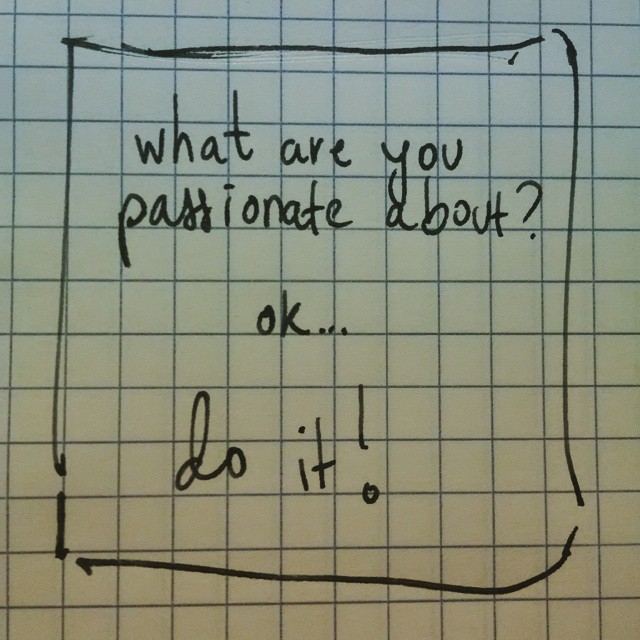 what are you
passionate about?
ok...
do it!